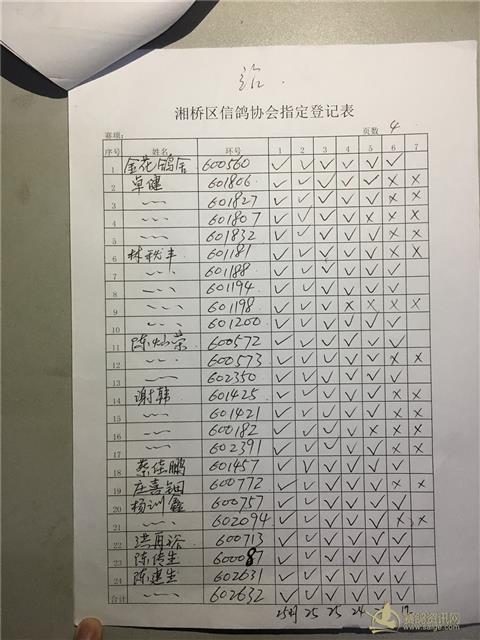 湘桥区信鸽协会指定登记表
赛项: 页数 4
序号 姓名 环号 1 2 3 4 5 6 7
1 金花鸽舍 600560 ✓ ✓ ✓ ✓ ✓ ✓
2 卓健 601806 ✓ ✓ ✓ ✓ ✓ × ×
3 〃 601827 ✓ ✓ ✓ ✓ ✓ × ×
4 〃 601807 ✓ ✓ ✓ ✓ × × ×
5 〃 601832 ✓ ✓ ✓ ✓ ✓ × ×
6 林秋丰 601181 ✓ ✓ ✓ ✓ ✓ × ×
7 〃 601188 ✓ ✓ ✓ ✓ ✓ ✓
8 〃 601194 ✓ ✓ ✓ ✓ ✓ ✓
9 〃 601198 ✓ ✓ ✓ × × × ×
10 〃 601200 ✓ ✓ ✓ ✓ ✓ ✓
11 陈灿荣 600572 ✓ ✓ ✓ ✓ ✓ ✓
12 〃 600573 ✓ ✓ ✓ ✓ ✓ × ×
13 〃 602350 ✓ ✓ ✓ ✓ ✓ ✓
14 谢韩 601425 ✓ ✓ ✓ ✓ ✓ × ×
15 〃 601421 ✓ ✓ ✓ ✓ ✓ × ×
16 〃 600182 ✓ ✓ ✓ ✓ ✓ × ×
17 〃 602391 ✓ ✓ ✓ ✓ ✓ × ×
18 蔡佳鹏 601457 ✓ ✓ ✓ ✓ ✓ ✓
19 庄喜钿 600772 ✓ ✓ ✓ ✓ ✓ × ×
20 杨训鑫 600757 ✓ ✓ ✓ ✓ ✓ ✓
21 〃 602094 ✓ ✓ ✓ ✓ ✓ × ×
22 洪再 600713 ✓ ✓ ✓ ✓ ✓ ✓
23 陈传生 600087 ✓ ✓ ✓ ✓ ✓ ✓
24 陈建生 602631 ✓ ✓ ✓ ✓ ✓ ✓
合计 〃 602632 ✓ ✓ ✓ ✓ ✓ ✓
25 25 25 24
赛鸽资讯网